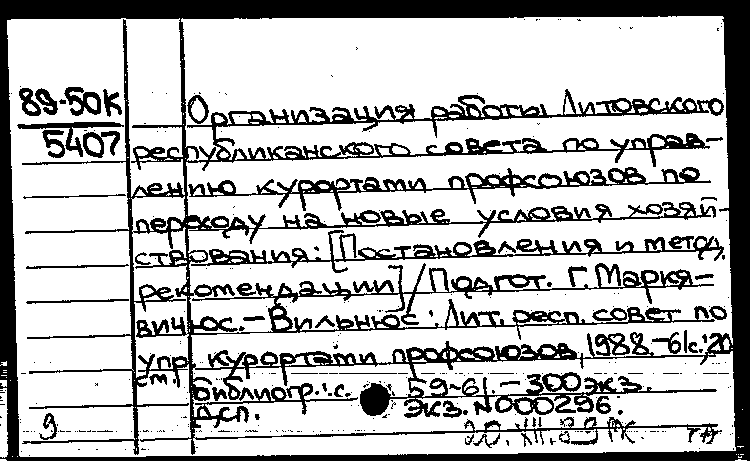 89-50К
5407
Организация работы Литовского
республиканского совета по управ-
лению курортами профсоюзов по
переходу на новые условия хозяй-
ствования: [Постановления и метод.
рекомендации] / Подгот. Г. Маркя-
вичюс. - Вильнюс: Лит. респ. совет по
упр. курортами профсоюзов, 1988. - 61с.; 20
см.
Библиогр.: с. 59-61. - 300 экз.
Дсп. Экз. N000296.
9
20.XII.89